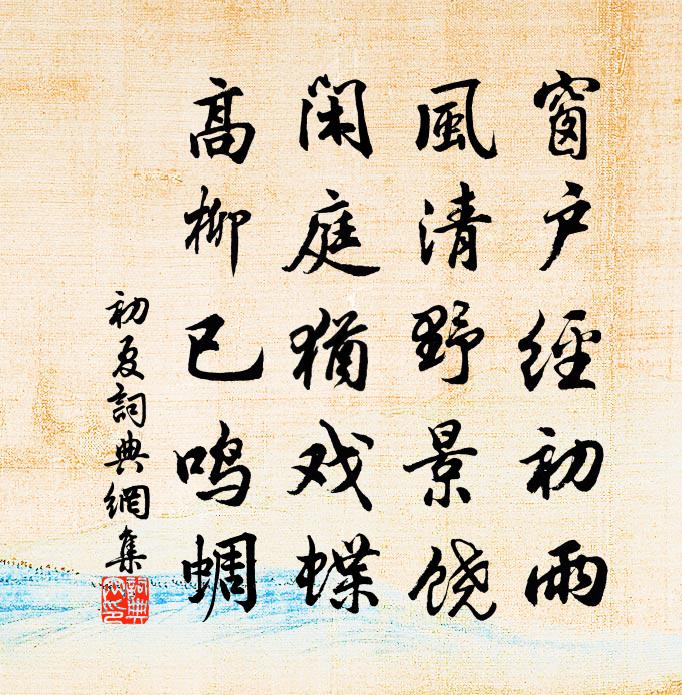 窗户經初雨
風清野景饶
閑庭猶戏蝶
高柳已鸣蜩
初夏詞典網集